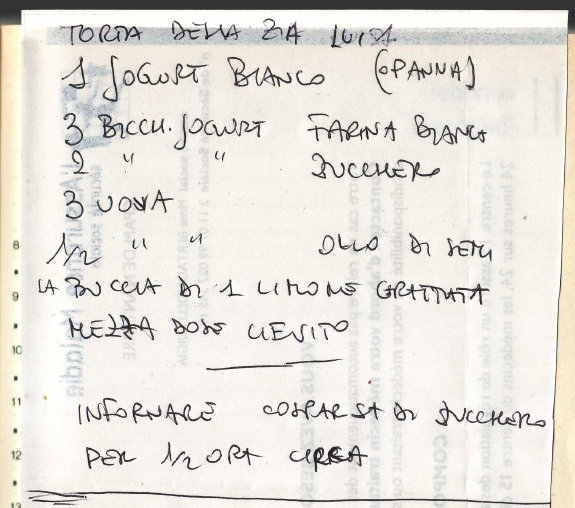 TORTA DELLA ZIA LUISA
1 JOGURT BIANCO (O PANNA)
3 BICCH. JOGURT FARINA BIANCA
2 " " ZUCCHERO
3 UOVA
1/2 " " OLIO DI SEMI
LA BUCCIA DI 1 LIMONE GRATTATA
MEZZA DOSE LIEVITO
INFORNARE COSPARSA DI ZUCCHERO
PER 1/2 ORA CIRCA
8
9
10
11
12
13